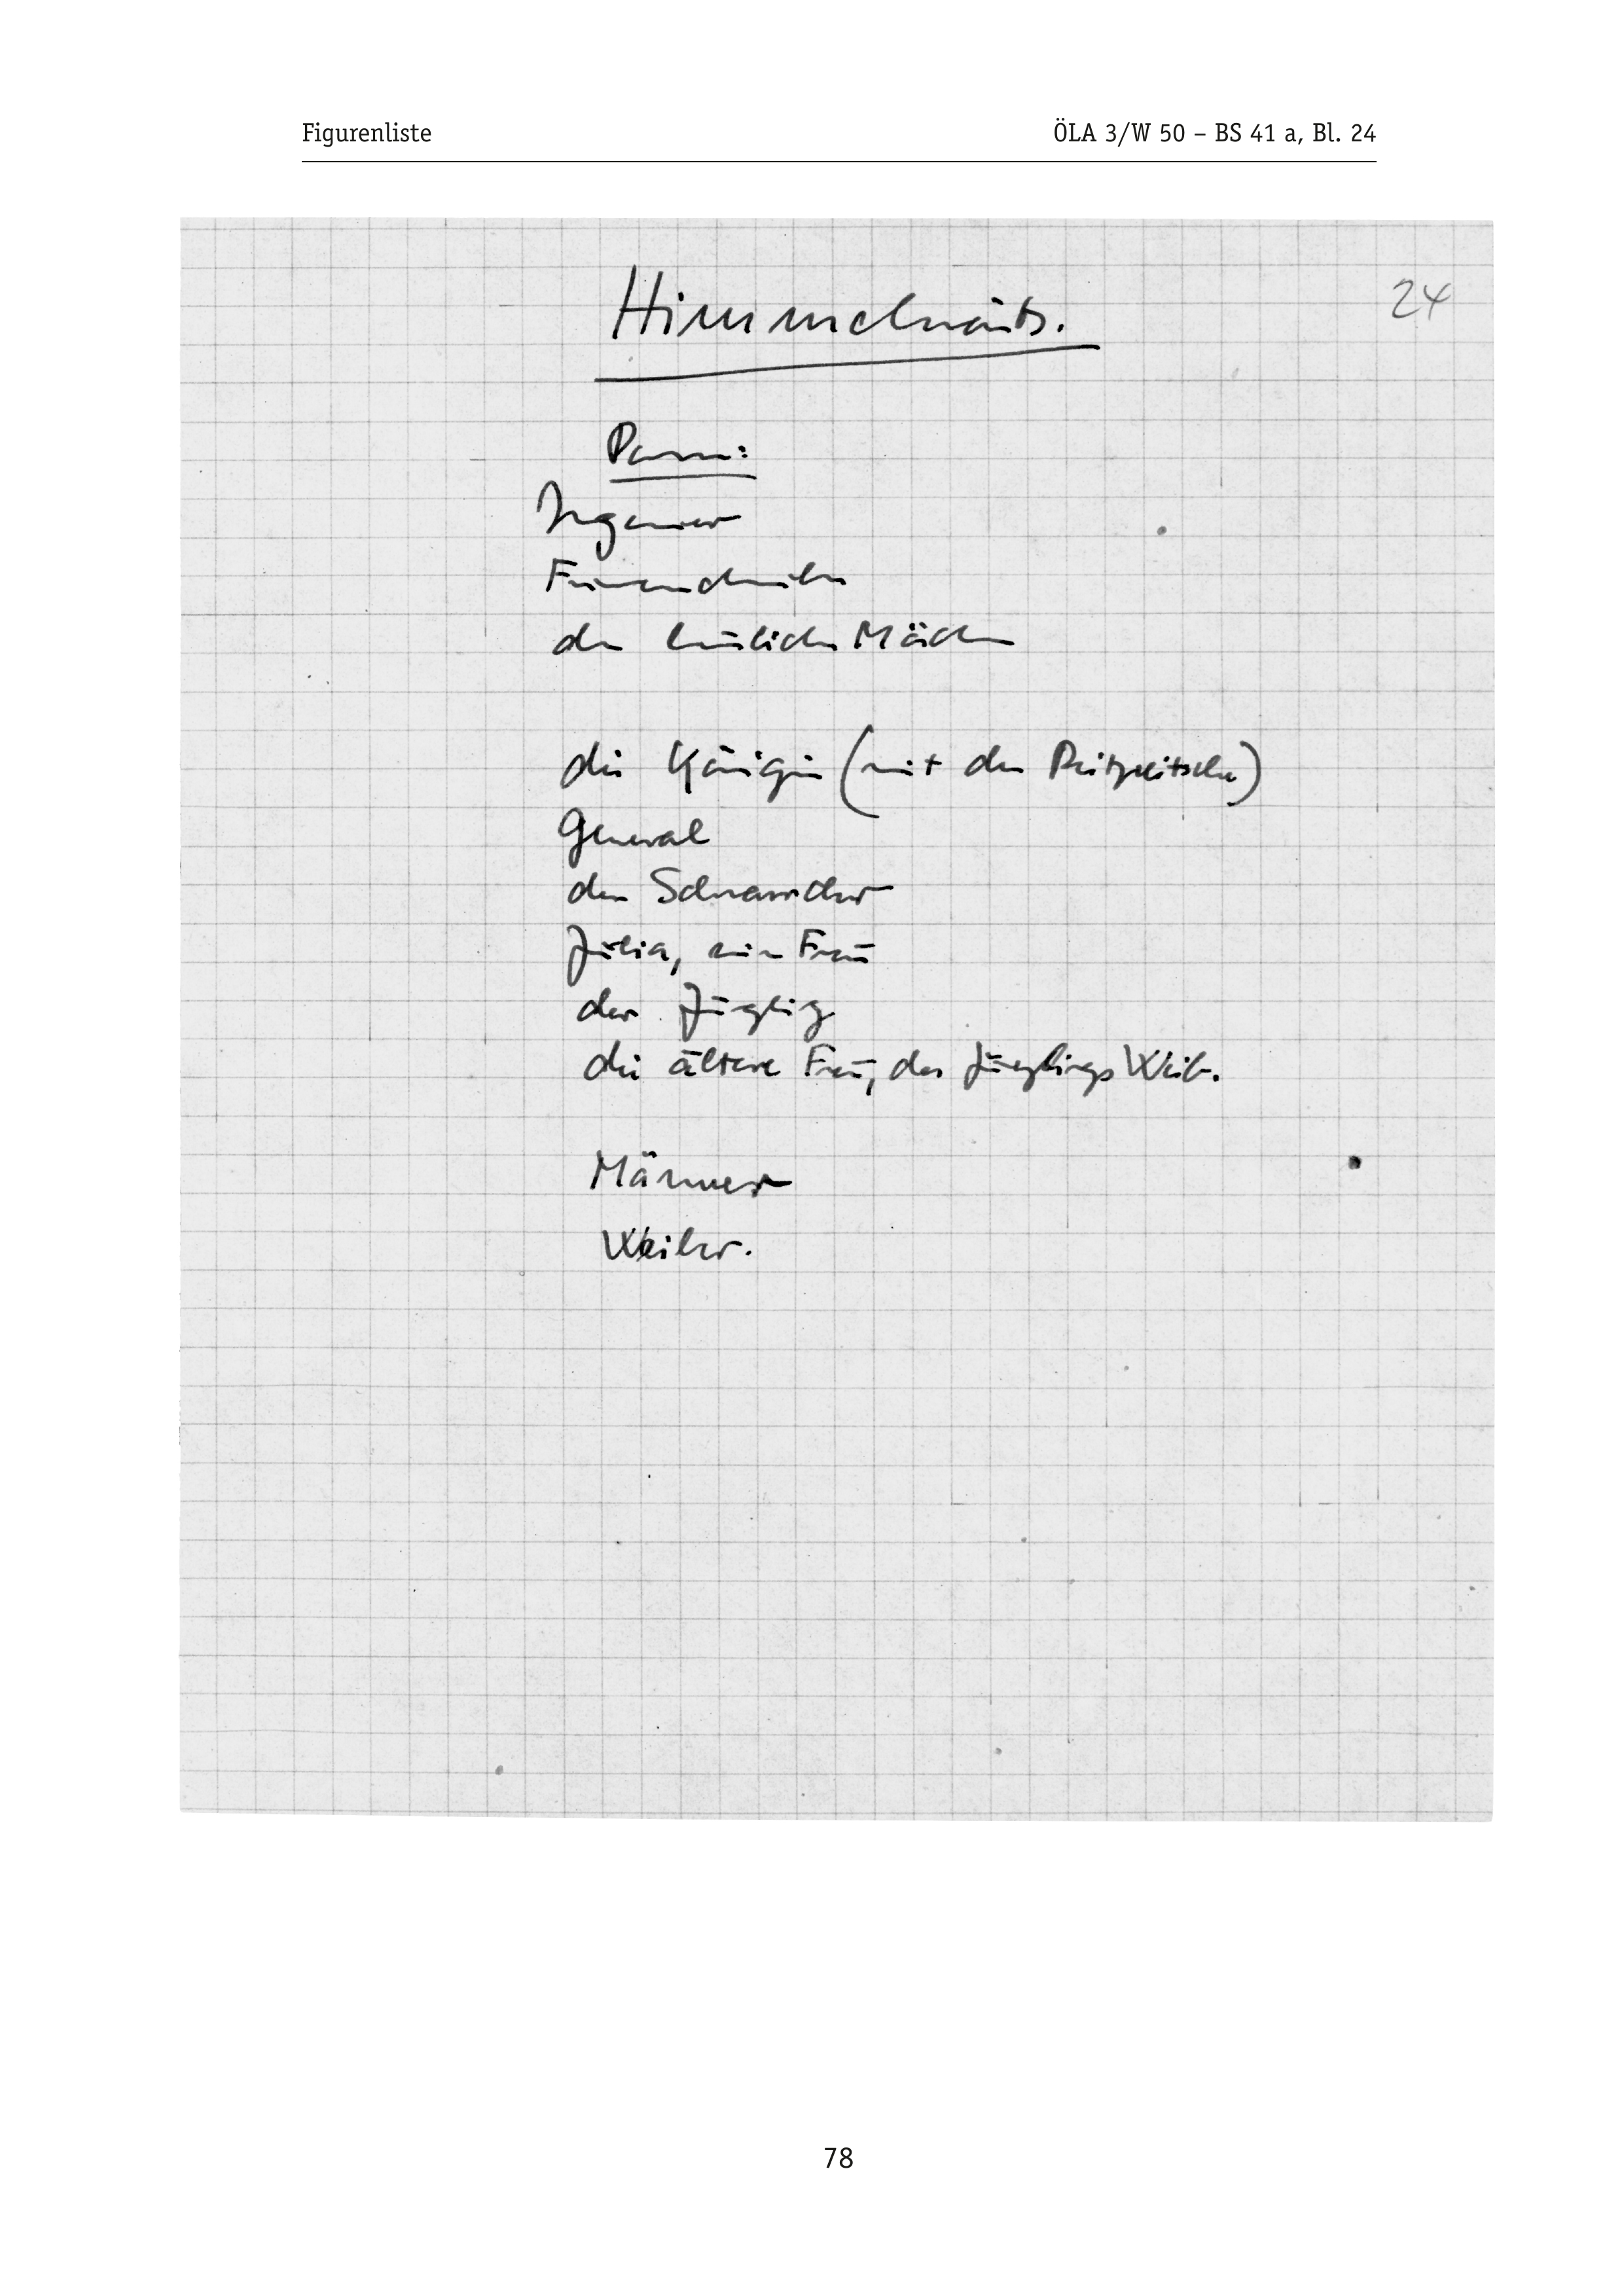 Figurenliste
ÖLA 3/W 50 – BS 41 a, Bl. 24
24
Himmelwärts.
Personen:
Ingenieur
der Mädchen
die Königin (mit der Reitpeitsche)
General
der Schnarcher
Julia, seine Frau
der Jüngling
die ältere Frau, des Jünglings Weib.
Männer
Weiber.
78